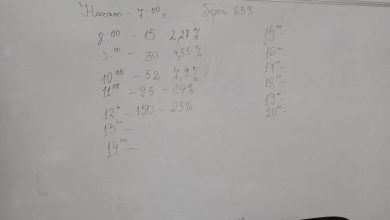 Начало - 7⁰⁰ ч. брой 659
8.00 - 15 2,28%
9.⁰⁰ - 30 4,55%
10⁰⁰ - 52 7,9%
11⁰⁰ - 95 - 14%
12⁰⁰ - 150 - 23%
13⁰⁰ -
14⁰⁰ -
15⁰⁰ -
16⁰⁰ -
17⁰⁰ -
18⁰⁰ -
19⁰⁰ -
20⁰⁰ -